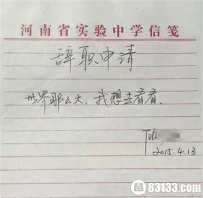 河南省实验中学信笺
辞职申请
世界那么大，我想去看看。
2015.4.13
83133.com